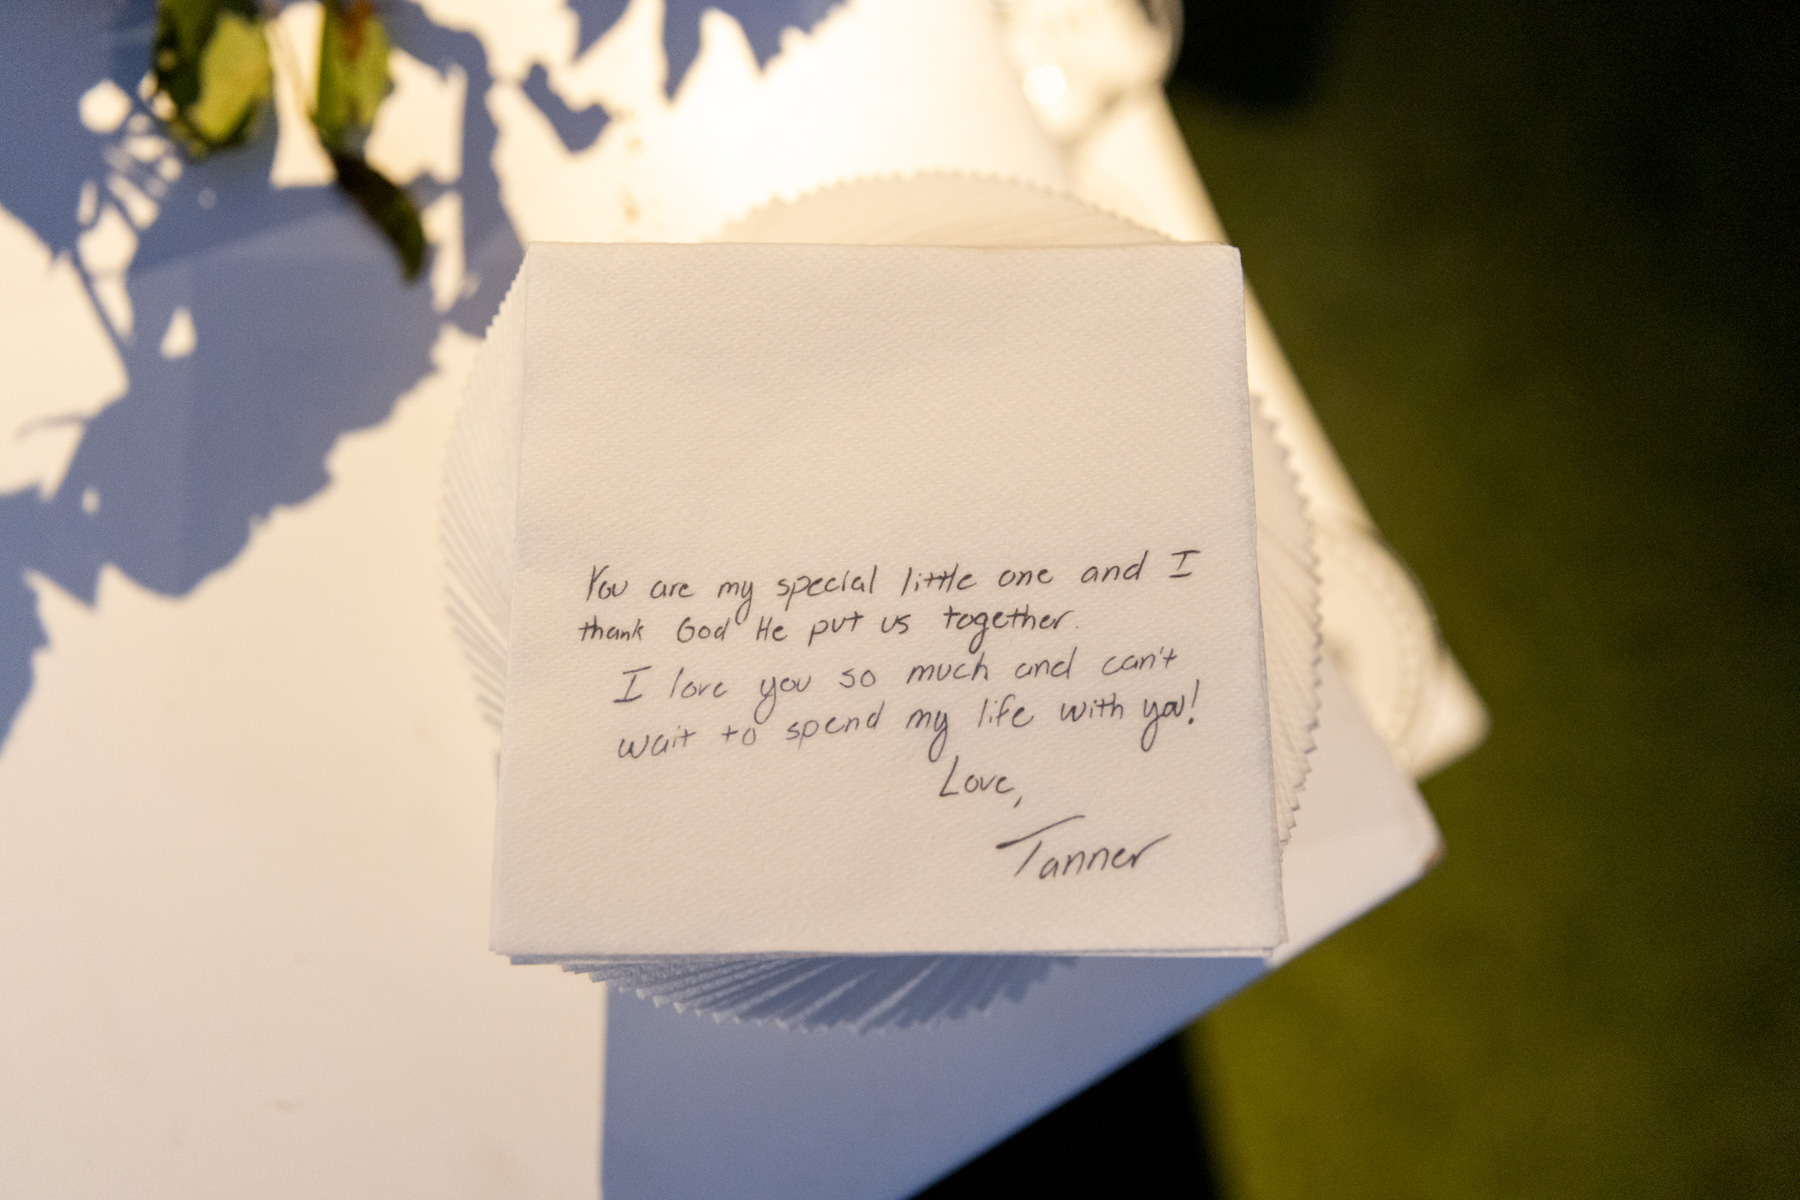 You are my special little one and I
thank God He put us together.
I love you so much and can't
wait to spend my life with you!
Love,
Tanner